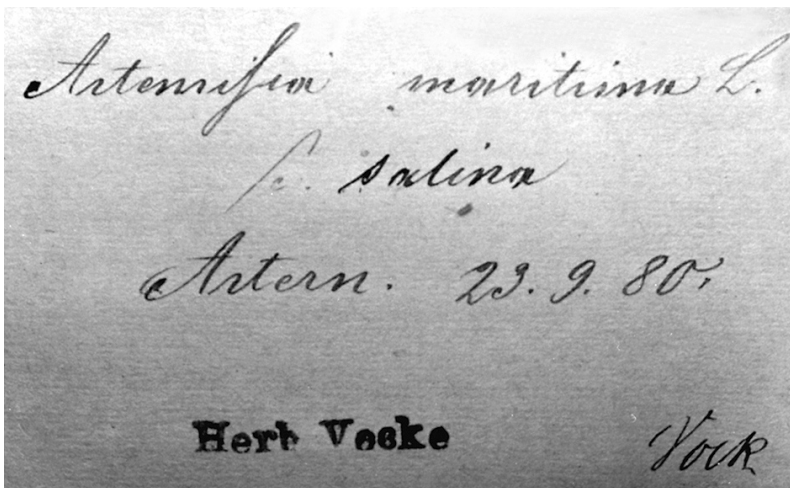 Artemiſia maritima L.
salina
Artern. 23. 9. 80.
Herb Vocke
Vock